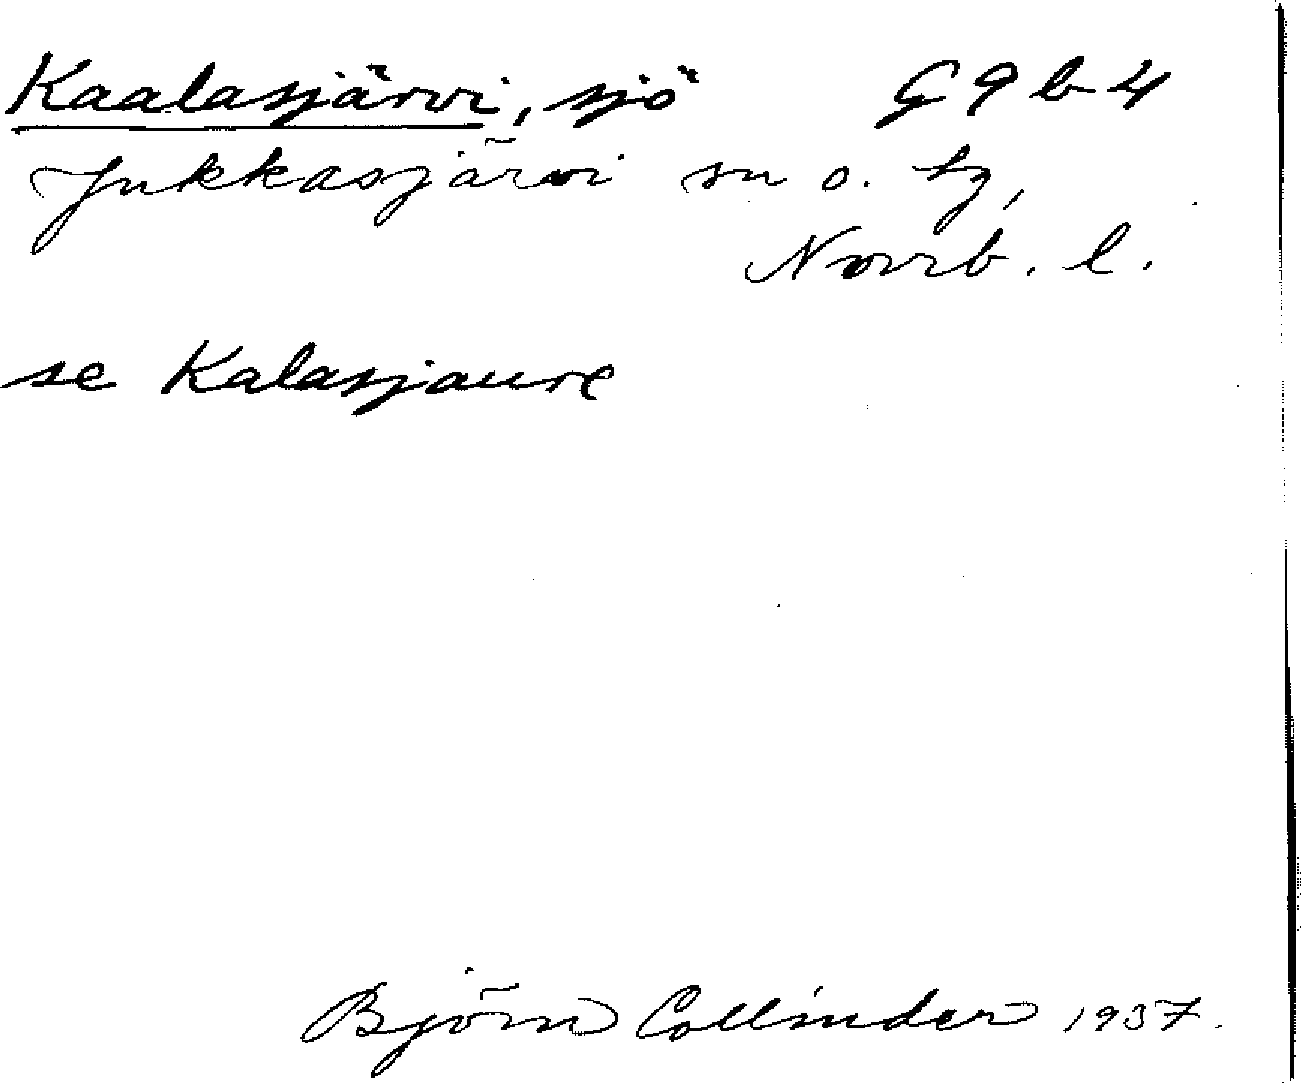 Kaalasjärvi, sjö G 9 b 4
Jukkasjärvi sn o. tg,
Norrb. l.
se Kalasjaure
Björn Collinder 1937.